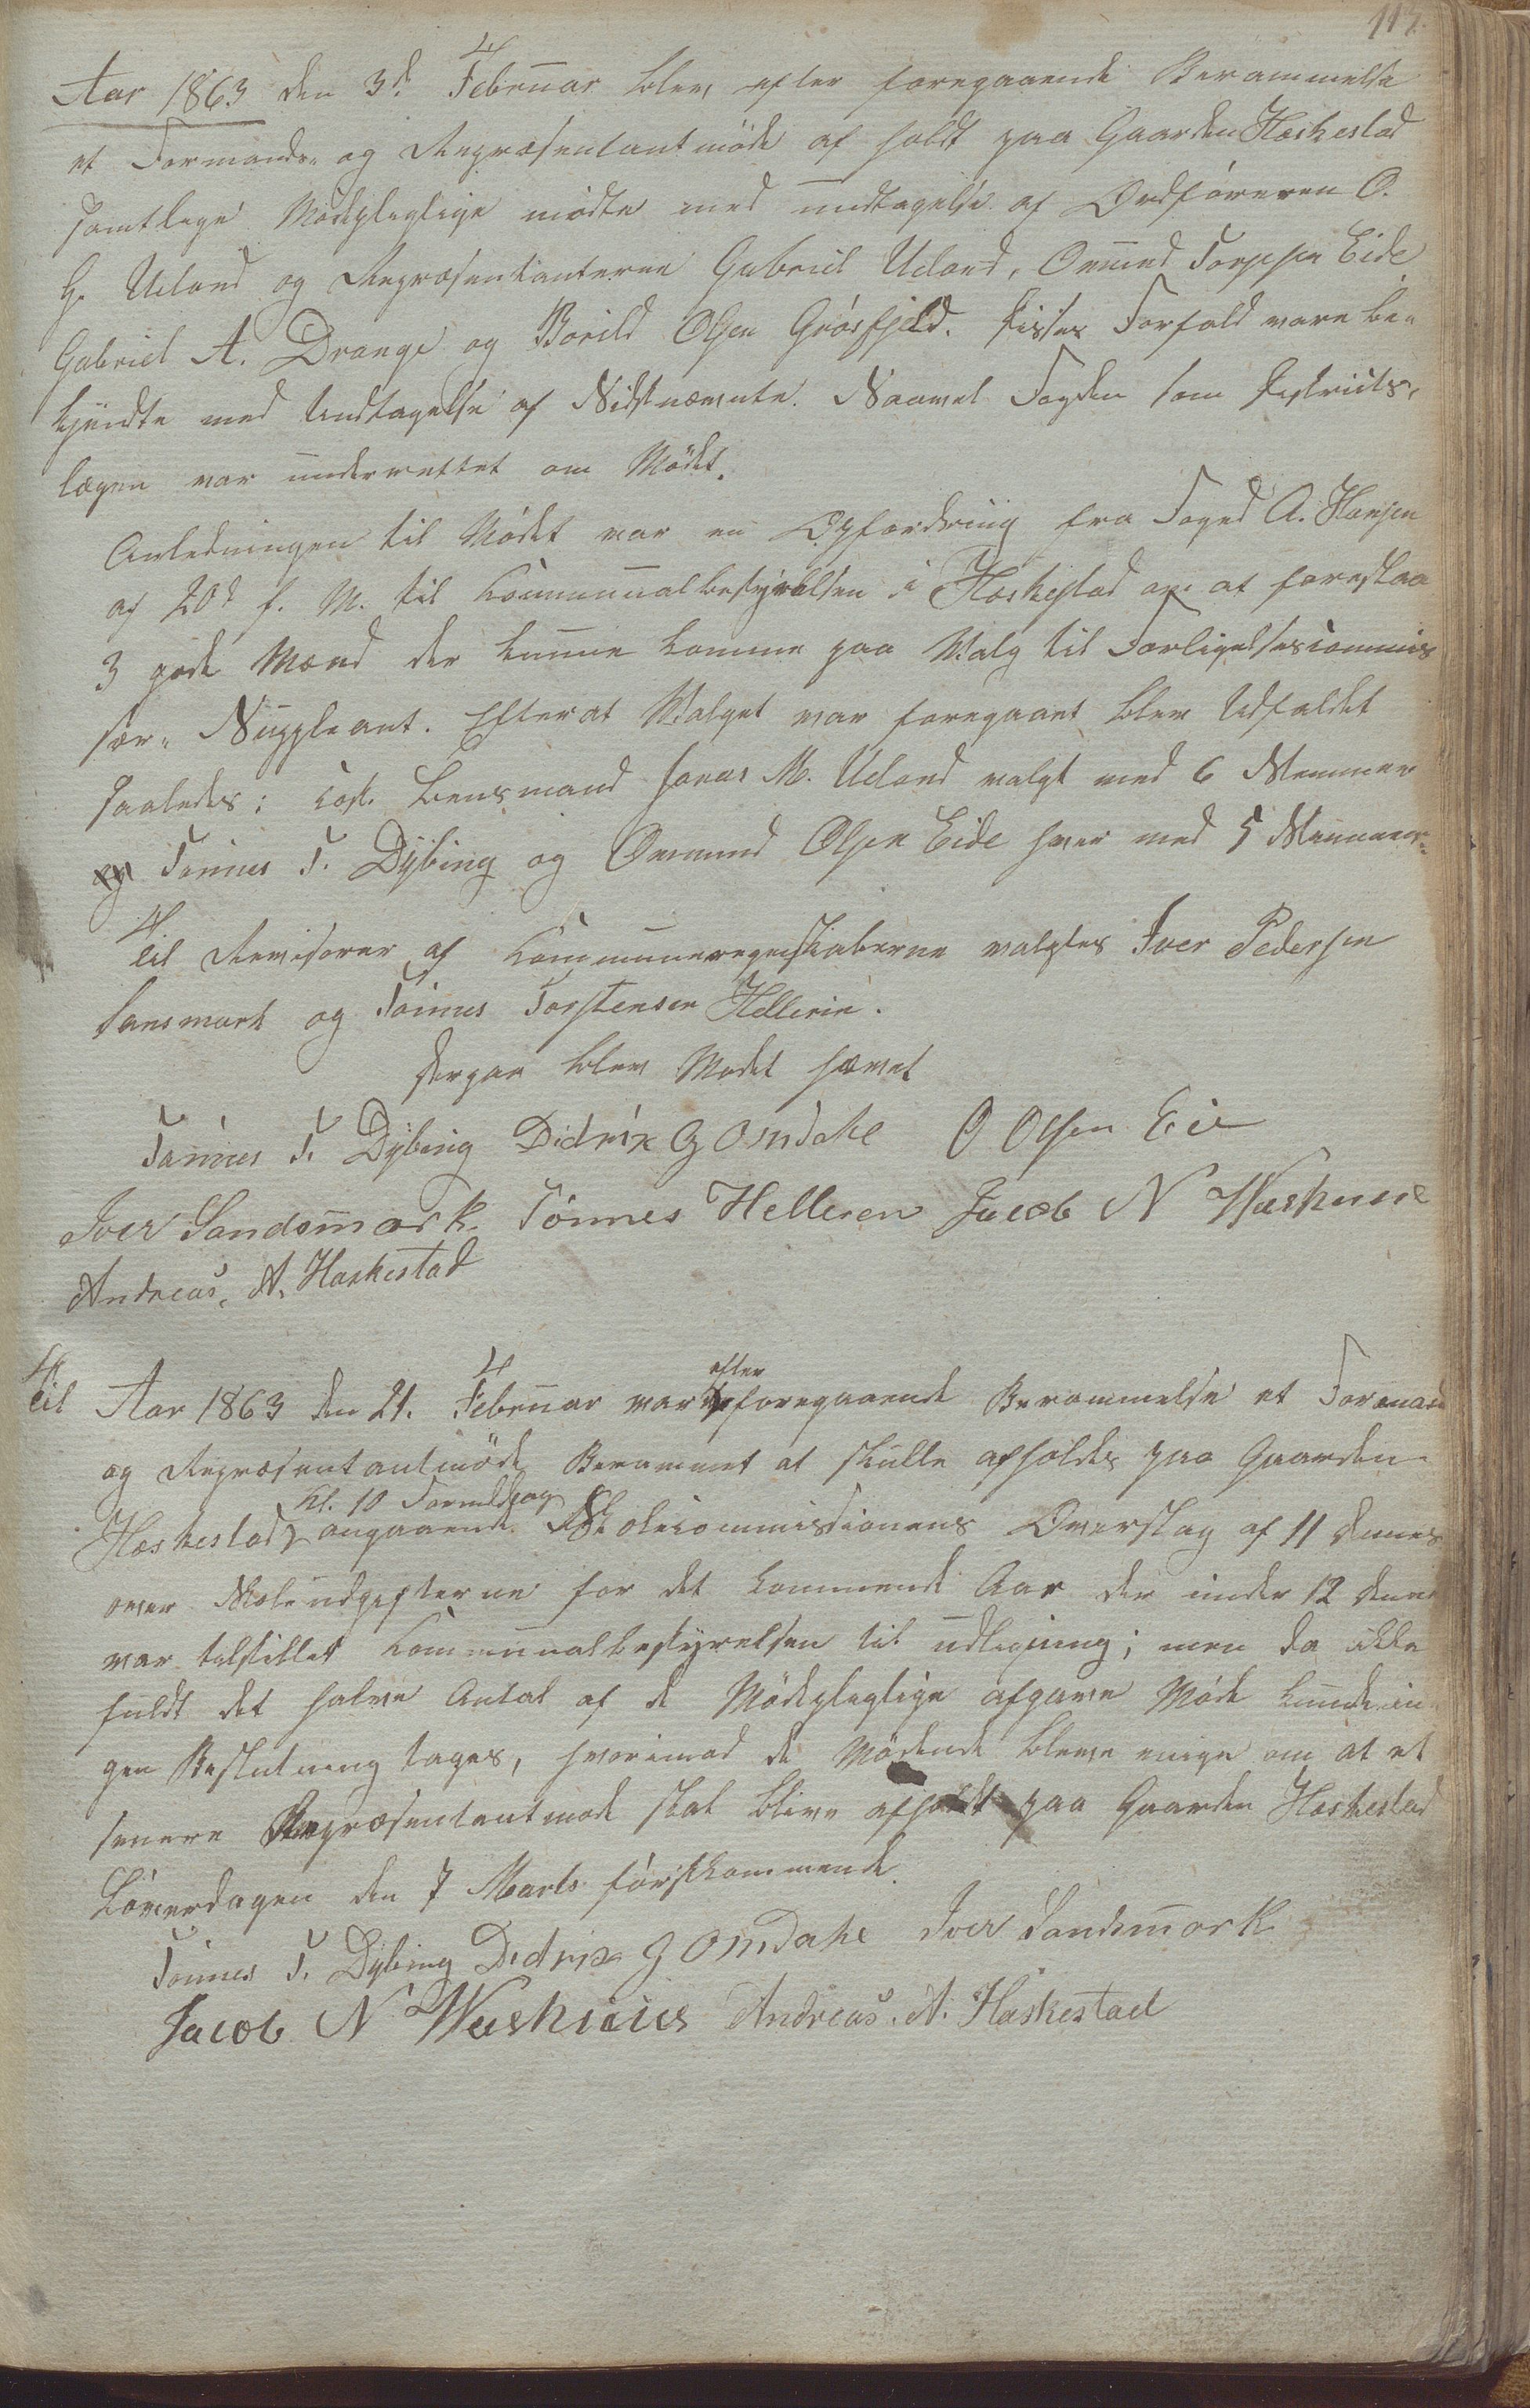 117.
Aar 1863 den 3d Februar blev efter foregaaende Berammelse
et Formands- og Repræsentantmöde af holdt paa Gaarden Hæskestad
samtlige Mödepligtige mödte med undtagelse af Ordföreren O.
G. Ueland og Repræsentanterne Gabriel Ueland, Ommund Torgersen Eide
Gabriel A. Drange og Borild Olsen Grösfjeld. Disses Forfald vare be-
kjendte med Undtagelse af Sidstnævnte. Saavel Fogden som Districts-
lægen var underrettet om Mödet.
Anledningen til Mödet var en Opfordring fra Foged A. Hansen
af 20d f. M. til Communalbestyrelsen i Hæskestad om at foreslaa
3 gode Mænd der kunne komme paa Valg til Forligelsescommis
sær-Suppleant. Efterat Valget var foregaaet blev Udfaldet
saaledes: Lensmand Jonas M. Ueland valgt med 6 Stemmer
og Tönnes T. Dybing og Ommund Olsen Eide hver med 5 Stemmer.
Til Revisorer af Communeregnskaberne valgtes Iver Pedersen
Sansmark og Tönnes Torstensen Helleren.
Derpaa blev Mödet hævet
Tönnes T. Dybing Didrix G Omdahl O Olsen Eie
Iver Sandsmark. Tönnes Helleren Jacob N
Andreas. A. Hæskestad
Til Aar 1863 den 21. Februar var efter foregaaende Berammelse et Formand
og Repræsentantmöde Berammet at skulle afholdes paa Gaarden
Hæskestad Kl. 10 Formiddag angaaende Skolecommissionens Overslag af 11 dennes
over Skoleudgifterne for det kommende Aar der under 12 dennes
var tilstillet Communalbestyrelsen til udligning; men da ikke
fuldt det halve Antal af de Mödepligtige afgave Möde kunde in
gen Beslutning tages, hvorimod de Mödende bleve enige om at et
senere Repræsentantmöde skal blive afholdt paa Gaarden Hæskestad
Löverdagen den 7 Marts förstkommende.
Tönnes T. Dybing Didrix G Omdahl Iver Sandsmark
Jacob N Andreas. A. Hæskestad